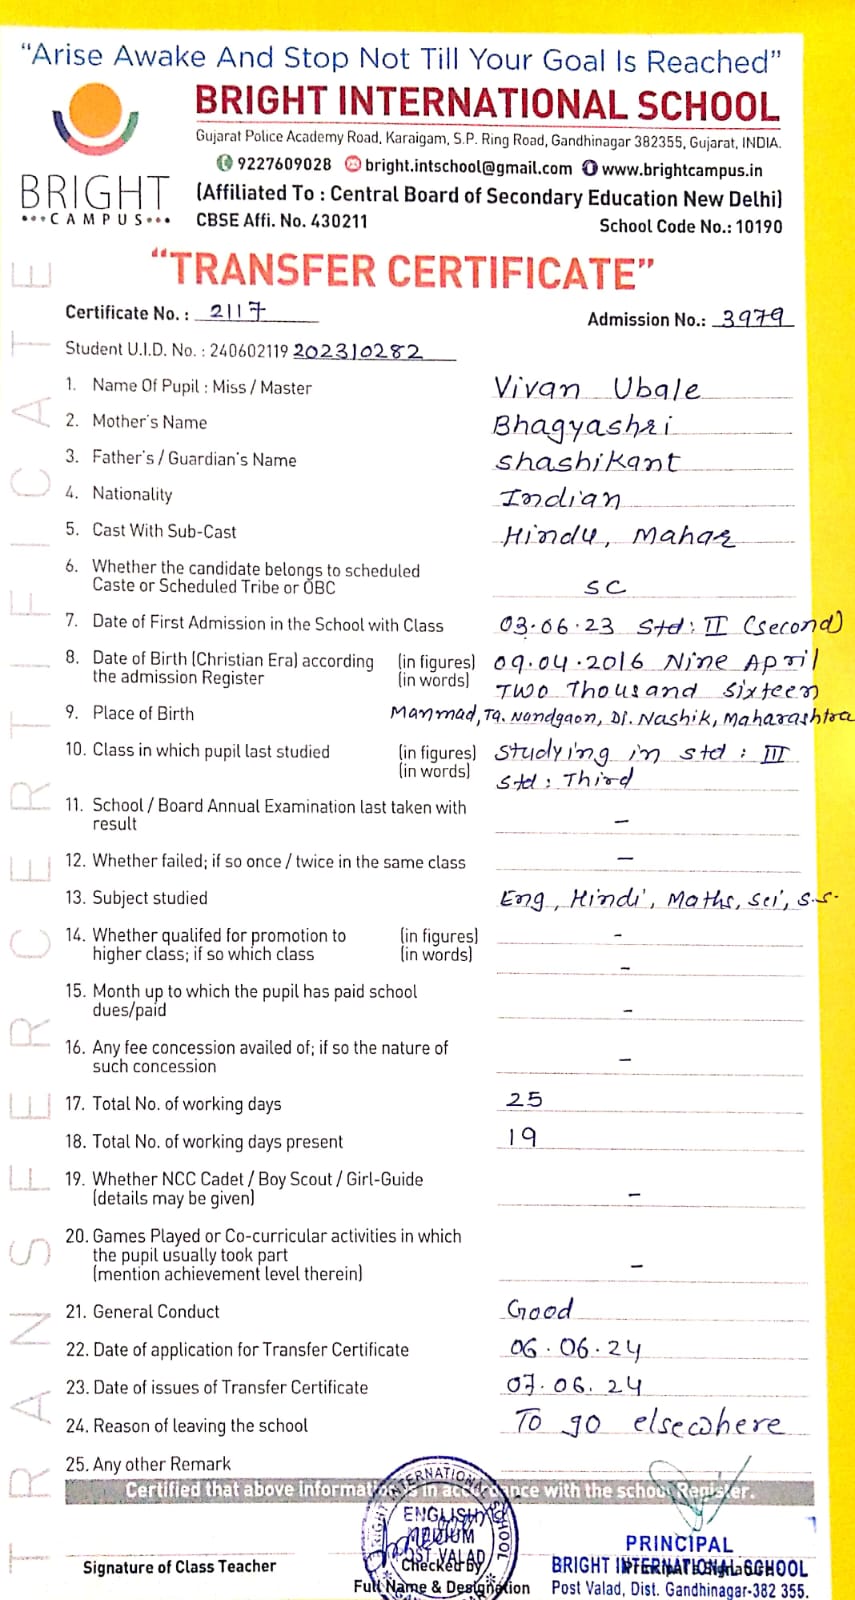 "Arise Awake And Stop Not Till Your Goal Is Reached"
BRIGHT INTERNATIONAL SCHOOL
Gujarat Police Academy Road, Karaigam, S.P. Ring Road, Gandhinagar 382355, Gujarat, INDIA.
9227609028 bright.intschool@gmail.com www.brightcampus.in
BRIGHT
CAMPUS
(Affiliated To : Central Board of Secondary Education New Delhi)
CBSE Affi. No. 430211 School Code No.: 10190
"TRANSFER CERTIFICATE"
TRANSFER CERTIFICATE
Certificate No. : 2117 Admission No.: 3979
Student U.I.D. No. : 240602119 202310282
1. Name Of Pupil : Miss / Master Vivan Ubale
2. Mother's Name Bhagyashri
3. Father's / Guardian's Name Shashikant
4. Nationality Indian
5. Cast With Sub-Cast Hindu, Mahar
6. Whether the candidate belongs to scheduled
Caste or Scheduled Tribe or OBC SC
7. Date of First Admission in the School with Class 03.06.23 Std: II (Second)
8. Date of Birth (Christian Era) according (in figures) 09.04.2016 Nine April
the admission Register (in words) Two Thousand Sixteen
9. Place of Birth Manmad, Ta. Nandgaon, Di. Nashik, Maharashtra
10. Class in which pupil last studied (in figures) Studying in std : III
(in words) Std : Third
11. School / Board Annual Examination last taken with
result –
12. Whether failed; if so once / twice in the same class –
13. Subject studied Eng, Hindi, Maths, Sci, S.S.
14. Whether qualifed for promotion to (in figures) -
higher class; if so which class (in words) -
15. Month up to which the pupil has paid school
dues/paid -
16. Any fee concession availed of; if so the nature of
such concession –
17. Total No. of working days 25
18. Total No. of working days present 19
19. Whether NCC Cadet / Boy Scout / Girl-Guide
(details may be given) –
20. Games Played or Co-curricular activities in which
the pupil usually took part
(mention achievement level therein) –
21. General Conduct Good
22. Date of application for Transfer Certificate 06.06.24
23. Date of issues of Transfer Certificate 07.06.24
24. Reason of leaving the school To go elsewhere
25. Any other Remark
Certified that above information is in accordance with the school Register.
BRIGHT INTERNATIONAL SCHOOL
ENGLISH
MEDIUM
POST VALAD
Signature of Class Teacher
Checked by
Full Name & Designation
PRINCIPAL
BRIGHT INTERNATIONAL SCHOOL
Post Valad, Dist. Gandhinagar-382 355.